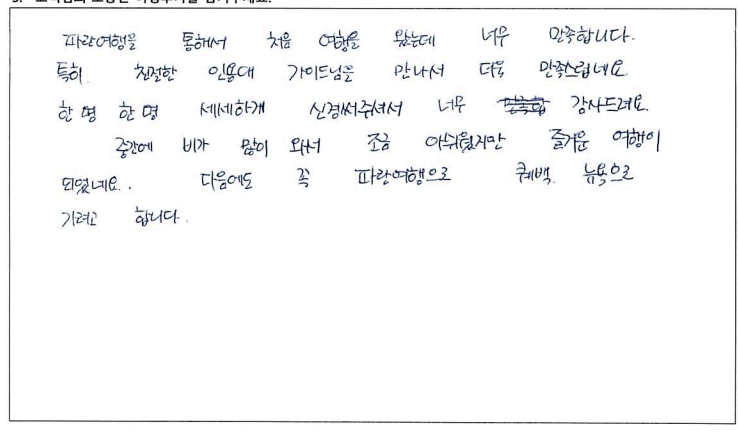 파란여행을 통해서 처음 여행을 왔는데 너무 만족합니다.
특히. 친절한 인용대 가이드님을 만나서 더욱 만족스럽네요.
한 명 한 명 세세하게 신경써주셔서 너무 감사드려요.
중간에 비가 많이 와서 조금 아쉬웠지만 즐거운 여행이
되었네요.. 다음에도 꼭 파란여행으로 퀘백. 뉴욕으로
가려고 합니다.